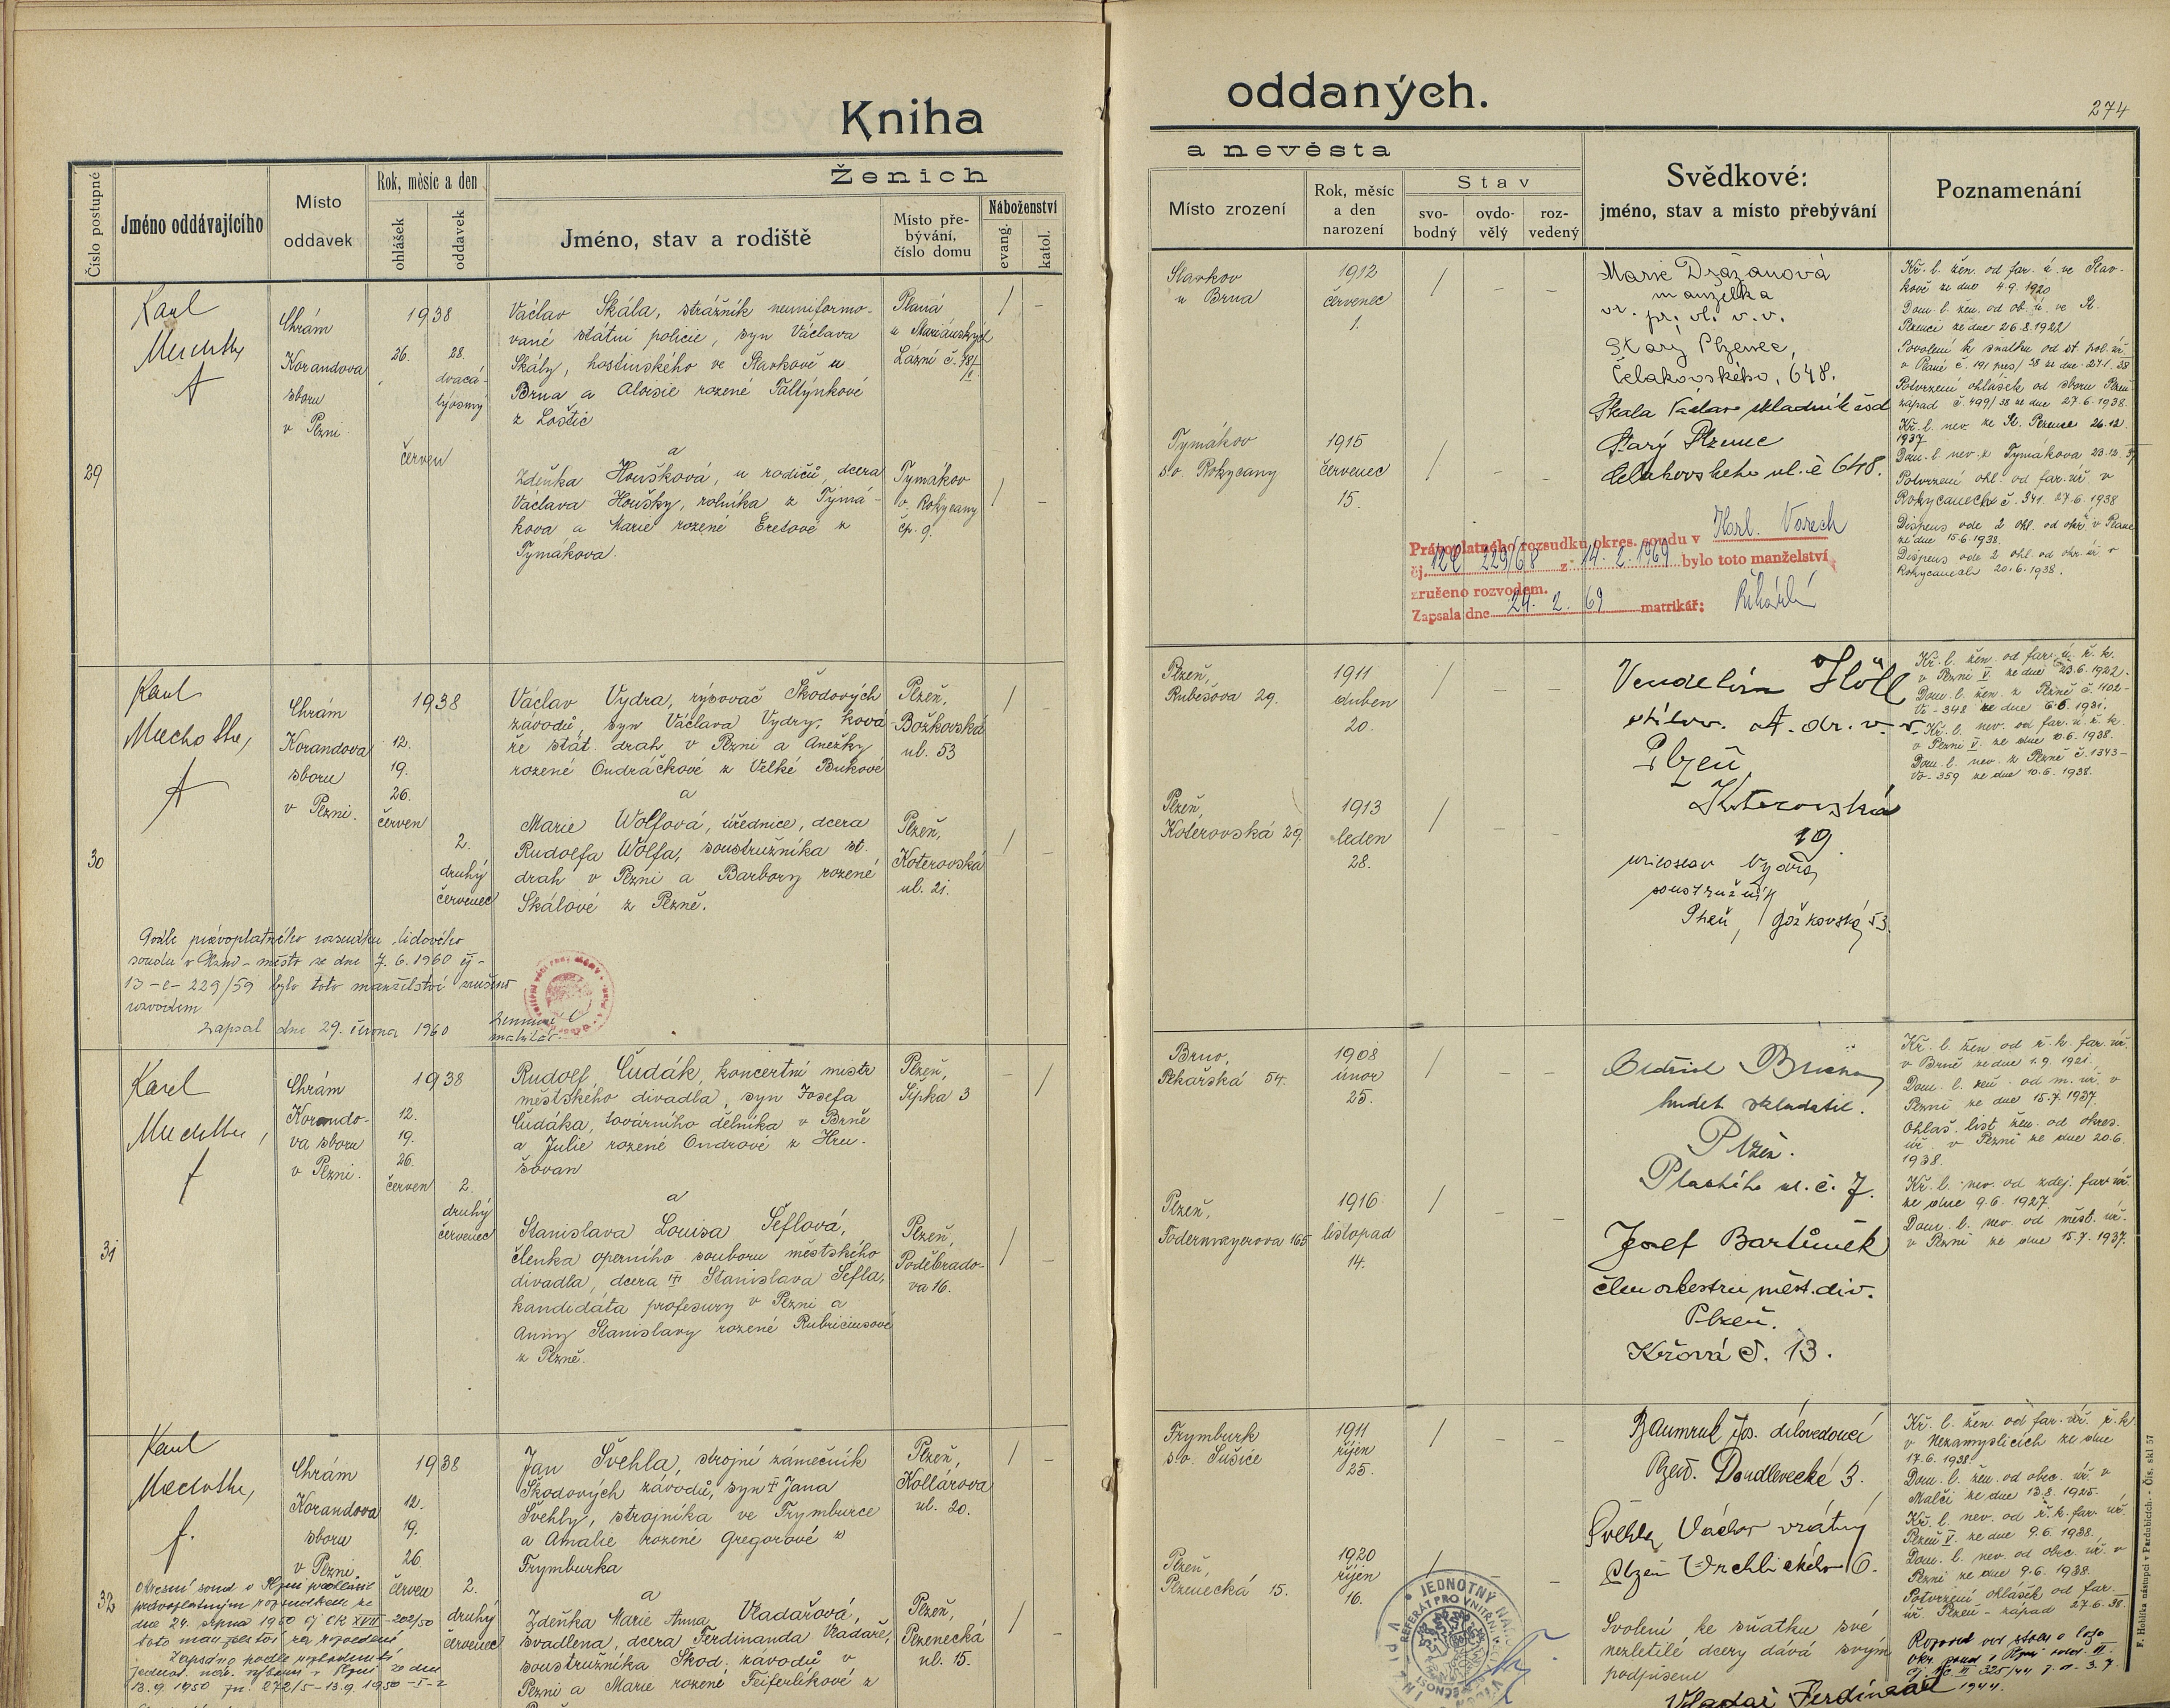 Kniha
oddaných.
274
Číslo postupné
Jméno oddávajícího
Místo
oddavek
Rok, měsíc a den
ohlášek
oddavek
Ženich
Jméno, stav a rodiště
Místo pře-
bývání,
číslo domu
Náboženství
evang.
katol.
a nevěsta
Místo zrození
Rok, měsíc
a den
narození
Stav
svo-
bodný
ovdo-
vělý
roz-
vedený
Svědkové:
jméno, stav a místo přebývání
Poznamenání
29
Chrám
Korandova
sboru
v Plzni
1938
26.
28.
dvacá-
týosmý
červen
Václav Skála, strážník neuniformo-
vané státní policie, syn Václava
Skály, hostinského ve Slavkově u
Brna a Aloisie rozené Faltýnkové
z Loštic
a
Zdeňka Houšková, u rodičů, dcera
Václava Houšky, rolníka z Tymá-
kova a Marie rozené Eretové z
Tymákova.
Planá
u Mariánských
Lázní č. 78/
Tymákov
o. Rokycany
čp. 9.
Slavkov
u Brna
1912
červenec
1.
Tymákov
s.o. Rokycany
1915
červenec
15.
Marie Dražanová
manželka
vr. pr. vl. v. v.
Starý Plzenec,
Čelakovského, 648.
Skala Václav skladník čsd
Starý Plzenec
Čelakovského ul. č 648.
Kř. l. žen. od far. ú. ve Slav-
kově ze dne 4.9.1920
Dom. l. žen. od ob. ú. ve St.
Plzenci ze dne 26.8.1922
Povolení k sňatku od st. pol. úř.
v Plané č. 191 pres/38 ze dne 27.1.38
Potvrzení ohlášek od sboru Plzeň
západ č. 499/38 ze dne 27.6.1938.
Kř. l. nev. ze St. Plzence 26.12.
1937.
Dom. l. nev. z Tymákova 23.12.37
Potvrzení ohl. od far. úř. v
Rokycanech č. 341. 27.6.1938
Dispens ode 2 ohl. od okr. v Plané
ze dne 15.6.1938.
Dispens ode 2 ohl. od okr. úř. v
Rokycanech 20.6.1938.
Právoplatného rozsudku okres. soudu v Karl. Varech
čj. 12C 229/68 z 14. 2. 1969 bylo toto manželství
zrušeno rozvodem.
Zapsala dne 24. 2. 69 matrikář:
30
Chrám
Korandova
sboru
v Plzni.
1938
12.
19.
26.
červen
2.
druhý
červenec
Václav Vydra, rýsovač Škodových
závodů, syn Václava Vydry, ková-
ře stát. drah v Plzni a Anežky
rozené Ondráčkové z Velké Bukové
a
Marie Wolfová, úřednice, dcera
Rudolfa Wolfa, soustružníka st.
drah v Plzni a Barbory rozené
Skálové z Plzně.
Plzeň,
Božkovská
ul. 53
Plzeň,
Koterovská
ul. 21.
Plzeň,
Rubešova 29.
1911
duben
20.
Plzeň,
Koterovská 29.
1913
leden
28.
st. dr. v. v.
Plzeň
Koterovská
19
Miroslav Vydra
soustružník
Plzeň, Božkovská 53.
Kř. l. žen. od far. ú. ř. k.
v Plzni V. ze dne 23.6.1922.
Dom. l. žen. z Plzně č. 1102-
Vč-348 ze dne 6.6.1931.
Kř. l. nev. od far. ú. ř. k.
v Plzni V. ze dne 10.6.1938.
Dom. l. nev. z Plzně č. 1343-
Vč-359 ze dne 10.6.1938.
Podle právoplatného rozsudku lidového
soudu v Plzni-město ze dne 7.6.1960 čj-
13-C-229/59 bylo toto manželství zrušeno
rozvodem
Zapsal dne 29. června 1960
matrikář.
31
Karel
Chrám
Korando-
va sboru
v Plzni.
1938
12.
19.
26.
červen
2.
druhý
červenec
Rudolf Čudák, koncertní mistr
městského divadla, syn Josefa
Čudáka, továrního dělníka v Brně
a Julie rozené Ondrové z Hru-
šovan
a
Stanislava Louisa Šeflová,
členka operního souboru městského
divadla, dcera Stanislava Šefla,
kandidáta profesury v Plzni a
Anny Stanislavy rozené Rubriciusové
z Plzně.
Plzeň,
Sípka 3
Plzeň,
Poděbrado-
va 16.
Brno,
Pekařská 54.
1908
únor
25.
Plzeň,
Todermayerova 165
1916
listopad
14.
Oldřich
hudeb. skladatel.
Plzeň.
Plachého ul. č. 7.
Josef Bartůněk
člen orkestru měst. div.
Plzeň.
Křížová č. 13.
Kř. l. žen od ř. k. far. úř.
v Brně ze dne 1.9.1921.
Dom. l. žen. od m. úř. v
Plzni ze dne 15.7.1937.
Ohlaš. list žen. od okres.
úř. v Plzni ze dne 20.6.
1938.
Kř. l. nev. od zdej. far. úř.
ze dne 9.6.1927.
Dom. l. nev. od měst. úř.
v Plzni ze dne 15.7.1937.
32
Chrám
Korandova
sboru
v Plzni.
1938
12.
19.
26.
červen
2.
druhý
červenec
Jan Švehla, strojní zámečník
Škodových závodů, syn Jana
Švehly, strojníka ve Frymburce
a Amalie rozené Gregorové z
Frymburka
a
Zdeňka Marie Anna Vladařová,
švadlena, dcera Ferdinanda Vladaře,
soustružníka Škod. závodů v
Plzni a Marie rozené Feiferlíkové z
Plzeň,
Kollárova
ul. 20.
Plzeň,
Plzenecká
ul. 15.
Frymburk
s.o. Sušice
1911
říjen
25.
Plzeň,
Plzenecká 15.
1920
říjen
16.
Baumruk Jos. dílovedoucí
Plzeň. Doudlevecká 3.
Švehla Václav vrátný
Plzeň Vrchlického 16.
Svolení ke sňatku své
nezletilé dcery dává svým
podpisem
Vladař Ferdinand
Kř. l. žen. od far. úř. ř. k.
v Nezamyslicích ze dne
17.6.1938
Dom. l. žen. od obec. úř. v
Malči ze dne 13.8.1925.
Kř. l. nev. od ř. k. far. úř.
Plzeň V. ze dne 9.6.1938.
Dom. l. nev. od obec. úř. v
Plzni ze dne 9.6.1938.
Potvrzení ohlášek od far.
úř. Plzeň-západ 27.6.38.
Rozvod od stolu a lože
1944.
Okresní soud v Plzni prohlásil
pravoplatným rozsudkem ze
dne 24. srpna 1950 čj CK XVII-202/50
toto manželství za rozvedené
13.9.1950
JEDNOTNÝ
REFERÁT PRO VNITŘNÍ
F. Hoblík, nástupci v Pardubicích. - Čís. skl 57